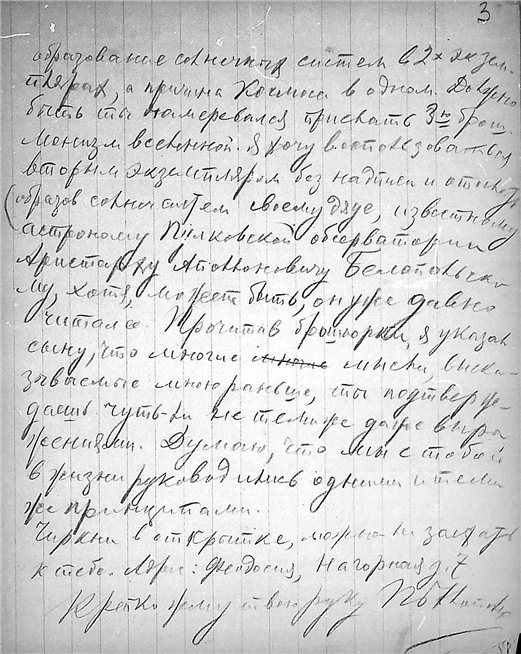 3
образование солнечных систем в 2х экзем-
плярах, а причина Космоса в одном. Должно
быть ты намеревался прислать 3ю брош.
Монизм вселенной. Я хочу воспользоваться
вторым экземпляром без надписи и
образов. солнеч. систем своему дяде, известному
астроному Пулковской обсерватории
Аристарху Аполлоновичу Белопольско-
му, хотя, может быть, он уже давно
читал ее. Прочитав брошюрки, я указал
сыну, что многие мысли, выска-
зываемые мною раньше, ты подтвер-
даешь чуть-ли не теми же даже выра
жениями. Думаю, что мы с тобой
в жизни руководились одними и теми
же принципами.
Черкни в открытке, можно ли заехать
к тебе. Адрес: Феодосия, Нагорная д. 7
Крепко жму твою руку